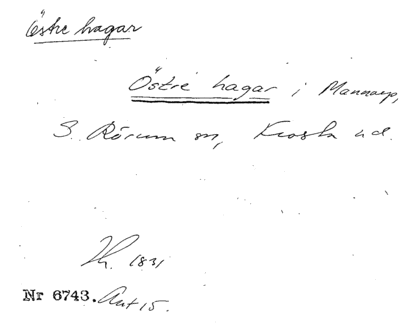 Östre hagar
Östre hagar i Mannarp,
S. Rörum sn, Frosta hd.
Lh. 1831
Nr 6743. Akt 15.